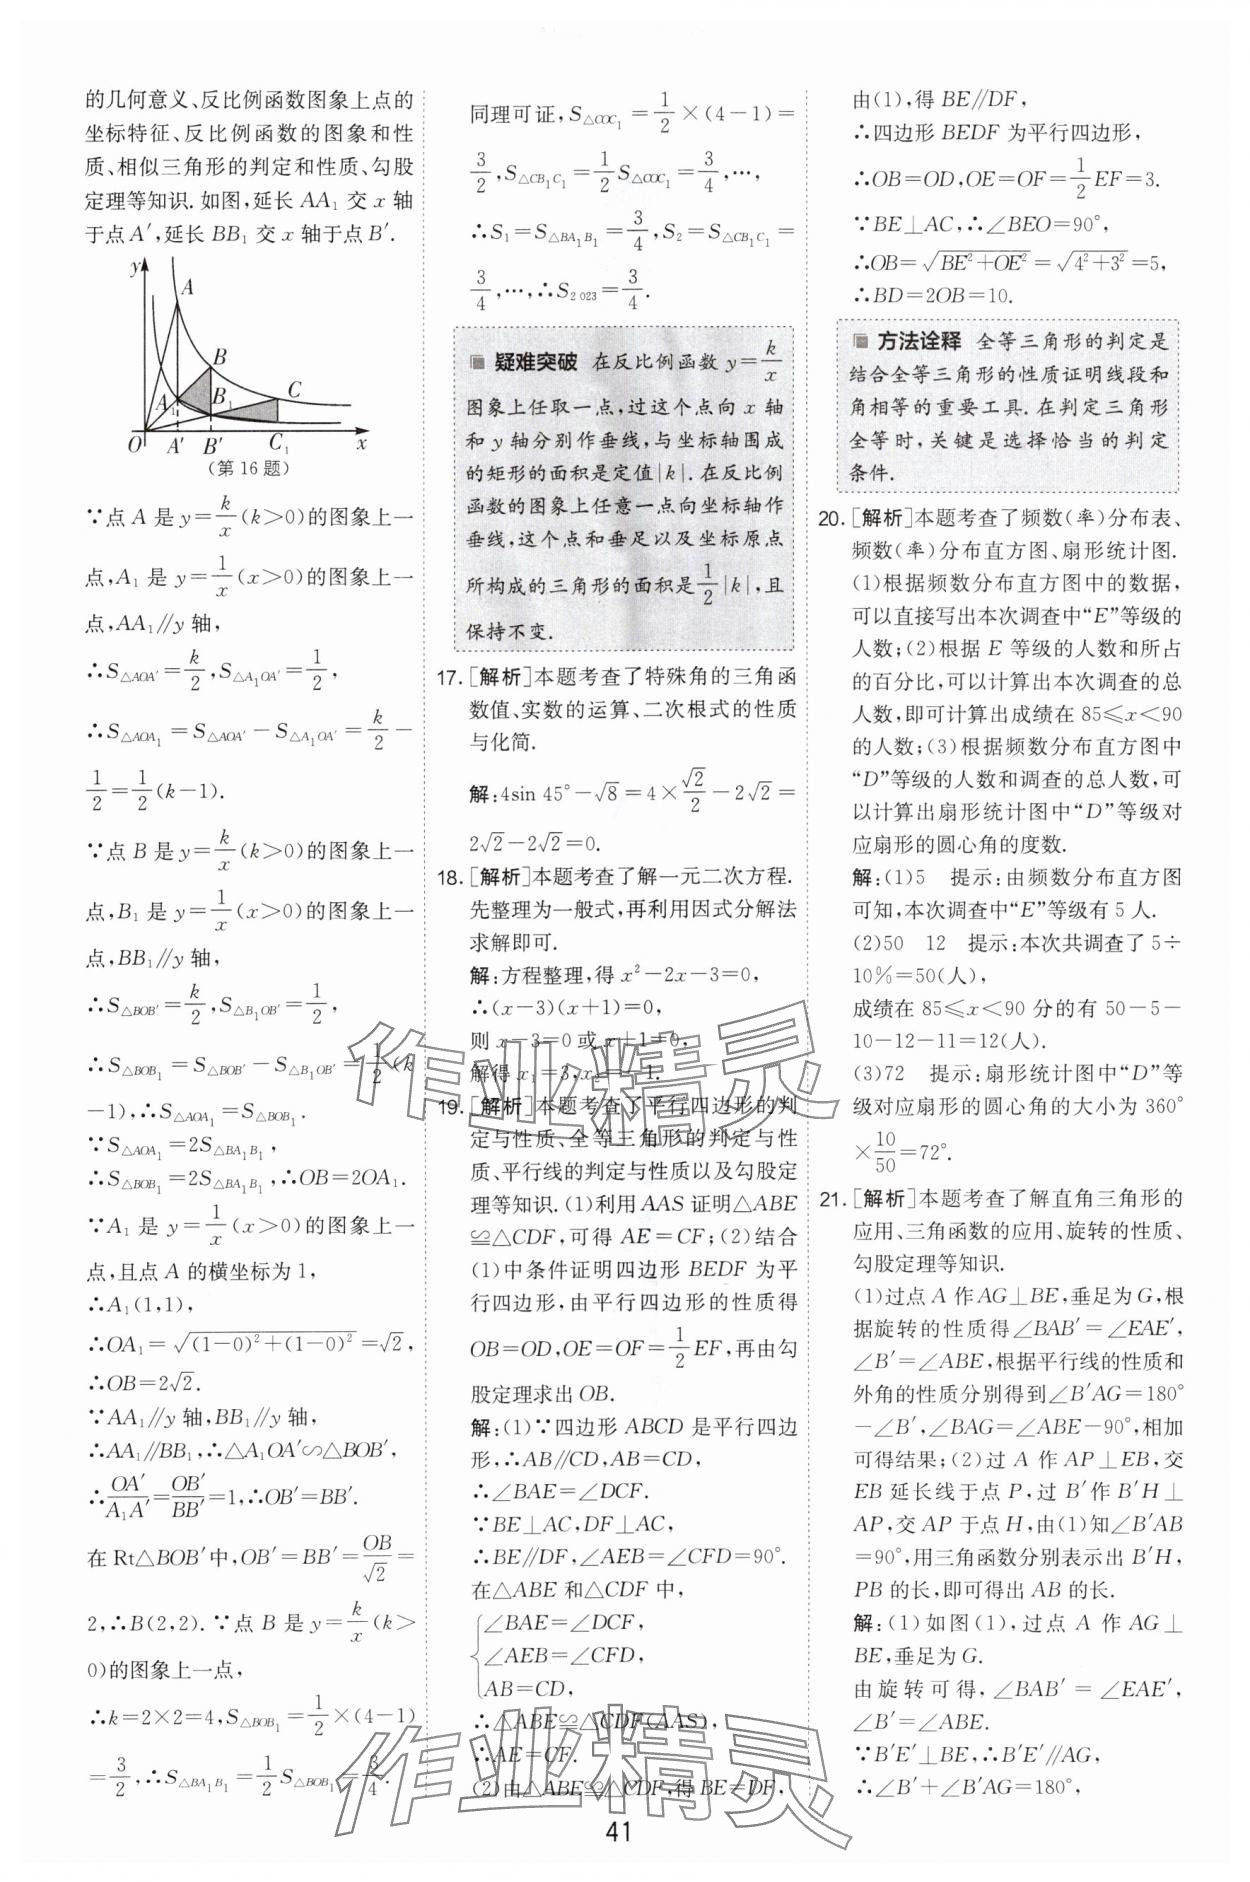 的几何意义、反比例函数图象上点的
坐标特征、反比例函数的图象和性
质、相似三角形的判定和性质、勾股
定理等知识. 如图,延长 AA₁ 交 x 轴
于点 A′,延长 BB₁ 交 x 轴于点 B′.
y
A
B
C
A₁
B₁
O A′ B′ C₁ x
(第 16 题)
∵点 A 是 y=k/x(k>0)的图象上一
点,A₁ 是 y=1/x(x>0)的图象上一
点,AA₁∥y 轴,
∴S△AOA′=k/2,S△A₁OA′=1/2,
∴S△AOA₁=S△AOA′-S△A₁OA′=k/2-
1/2=1/2(k-1).
∵点 B 是 y=k/x(k>0)的图象上一
点,B₁ 是 y=1/x(x>0)的图象上一
点,BB₁∥y 轴,
∴S△BOB′=k/2,S△B₁OB′=1/2,
∴S△BOB₁=S△BOB′-S△B₁OB′=1/2(k
-1),∴S△AOA₁=S△BOB₁.
∵S△AOA₁=2S△BA₁B₁,
∴S△BOB₁=2S△BA₁B₁,∴OB=2OA₁.
∵A₁ 是 y=1/x(x>0)的图象上一
点,且点 A 的横坐标为 1,
∴A₁(1,1),
∴OA₁=√((1-0)²+(1-0)²)=√2,
∴OB=2√2.
∵AA₁∥y 轴,BB₁∥y 轴,
∴AA₁∥BB₁,∴△A₁OA′∽△BOB′,
∴OA′/A₁A′=OB′/BB′=1,∴OB′=BB′.
在 Rt△BOB′中,OB′=BB′=OB/√2=
2,∴B(2,2).∵点 B 是 y=k/x(k>
0)的图象上一点,
∴k=2×2=4,S△BOB₁=1/2×(4-1)
=3/2,∴S△BA₁B₁=1/2S△BOB₁=3/4.
同理可证,S△COC₁=1/2×(4-1)=
3/2,S△CB₁C₁=1/2S△COC₁=3/4,…,
∴S₁=S△BA₁B₁=3/4,S₂=S△CB₁C₁=
3/4,…,∴S₂₀₂₃=3/4.
疑难突破 在反比例函数 y=k/x
图象上任取一点,过这个点向 x 轴
和 y 轴分别作垂线,与坐标轴围成
的矩形的面积是定值|k|.在反比例
函数的图象上任意一点向坐标轴作
垂线,这个点和垂足以及坐标原点
所构成的三角形的面积是1/2|k|,且
保持不变.
17. [解析]本题考查了特殊角的三角函
数值、实数的运算、二次根式的性质
与化简.
解:4sin 45°-√8=4×√2/2-2√2=
2√2-2√2=0.
18. [解析]本题考查了解一元二次方程.
先整理为一般式,再利用因式分解法
求解即可.
解:方程整理,得 x²-2x-3=0,
∴(x-3)(x+1)=0,
则 x-3=0 或 x+1=0,
解得 x₁=3,x₂=-1.
19. [解析]本题考查了平行四边形的判
定与性质、全等三角形的判定与性
质、平行线的判定与性质以及勾股定
理等知识.(1)利用 AAS 证明△ABE
≌△CDF,可得 AE=CF;(2)结合
(1)中条件证明四边形 BEDF 为平
行四边形,由平行四边形的性质得
OB=OD,OE=OF=1/2EF,再由勾
股定理求出 OB.
解:(1)∵四边形 ABCD 是平行四边
形,∴AB∥CD,AB=CD,
∴∠BAE=∠DCF.
∵BE⊥AC,DF⊥AC,
∴BE∥DF,∠AEB=∠CFD=90°.
在△ABE 和△CDF 中,
∠BAE=∠DCF,
∠AEB=∠CFD,
AB=CD,
∴△ABE≌△CDF(AAS),
∴AE=CF.
(2)由△ABE≌△CDF,得 BE=DF,
由(1),得 BE∥DF,
∴四边形 BEDF 为平行四边形,
∴OB=OD,OE=OF=1/2EF=3.
∵BE⊥AC,∴∠BEO=90°,
∴OB=√(BE²+OE²)=√(4²+3²)=5,
∴BD=2OB=10.
方法诠释 全等三角形的判定是
结合全等三角形的性质证明线段和
角相等的重要工具.在判定三角形
全等时,关键是选择恰当的判定
条件.
20. [解析]本题考查了频数(率)分布表、
频数(率)分布直方图、扇形统计图.
(1)根据频数分布直方图中的数据,
可以直接写出本次调查中“E”等级的
人数;(2)根据 E 等级的人数和所占
的百分比,可以计算出本次调查的总
人数,即可计算出成绩在 85≤x<90
的人数;(3)根据频数分布直方图中
“D”等级的人数和调查的总人数,可
以计算出扇形统计图中“D”等级对
应扇形的圆心角的度数.
解:(1)5 提示:由频数分布直方图
可知,本次调查中“E”等级有 5 人.
(2)50 12 提示:本次共调查了 5÷
10%=50(人),
成绩在 85≤x<90 分的有 50-5-
10-12-11=12(人).
(3)72 提示:扇形统计图中“D”等
级对应扇形的圆心角的大小为 360°
×10/50=72°.
21. [解析]本题考查了解直角三角形的
应用、三角函数的应用、旋转的性质、
勾股定理等知识.
(1)过点 A 作 AG⊥BE,垂足为 G,根
据旋转的性质得∠BAB′=∠EAE′,
∠B′=∠ABE,根据平行线的性质和
外角的性质分别得到∠B′AG=180°
-∠B′,∠BAG=∠ABE-90°,相加
可得结果;(2)过 A 作 AP⊥EB,交
EB 延长线于点 P,过 B′作 B′H⊥
AP,交 AP 于点 H,由(1)知∠B′AB
=90°,用三角函数分别表示出 B′H,
PB 的长,即可得出 AB 的长.
解:(1)如图(1),过点 A 作 AG⊥
BE,垂足为 G.
由旋转可得,∠BAB′=∠EAE′,
∠B′=∠ABE.
∵B′E′⊥BE,∴B′E′∥AG,
∴∠B′+∠B′AG=180°,
作业精灵
作业精灵
41